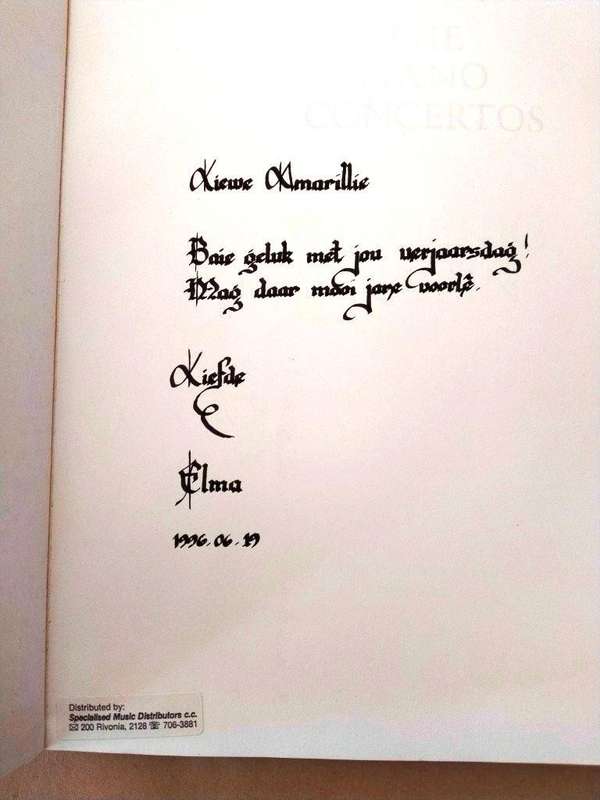 CONCERTOS
Liewe Amarillie
Baie geluk met jou verjaarsdag!
Mag daar mooi jare voorlê.
Liefde
Elma
1996.06.19
Distributed by:
Specialised Music Distributors c.c.
✉ 200 Rivonia, 2128 ☏ 706-3881